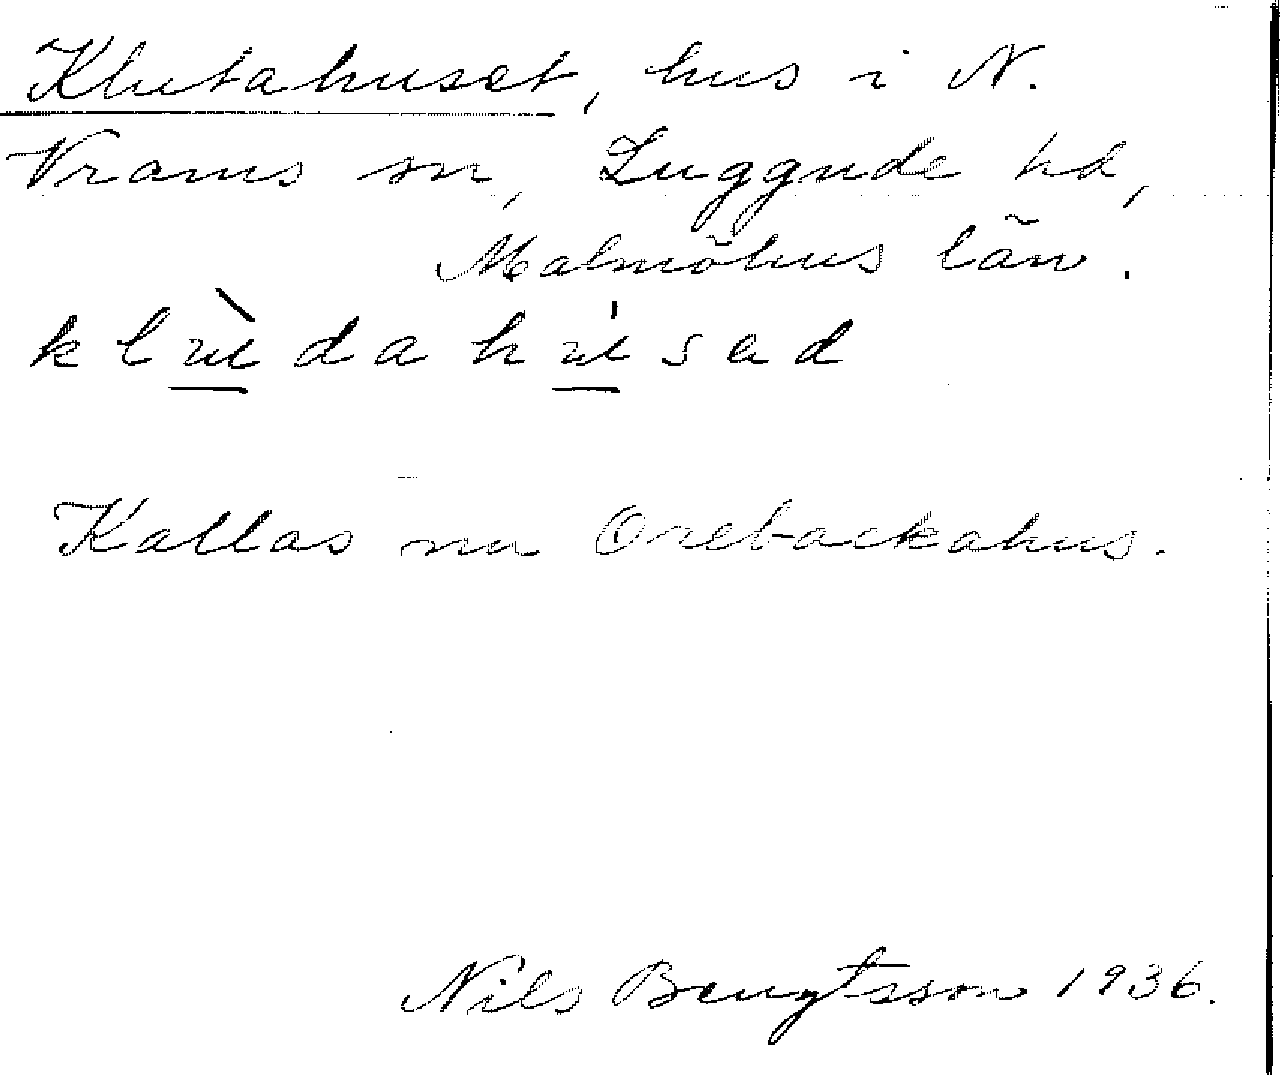 Klutahuset, hus i N.
Vrams sn, Luggude hd,
Malmöhus län.
klùdahúsad
Kallas nu Orebackahus.
Nils Bengtsson 1936.